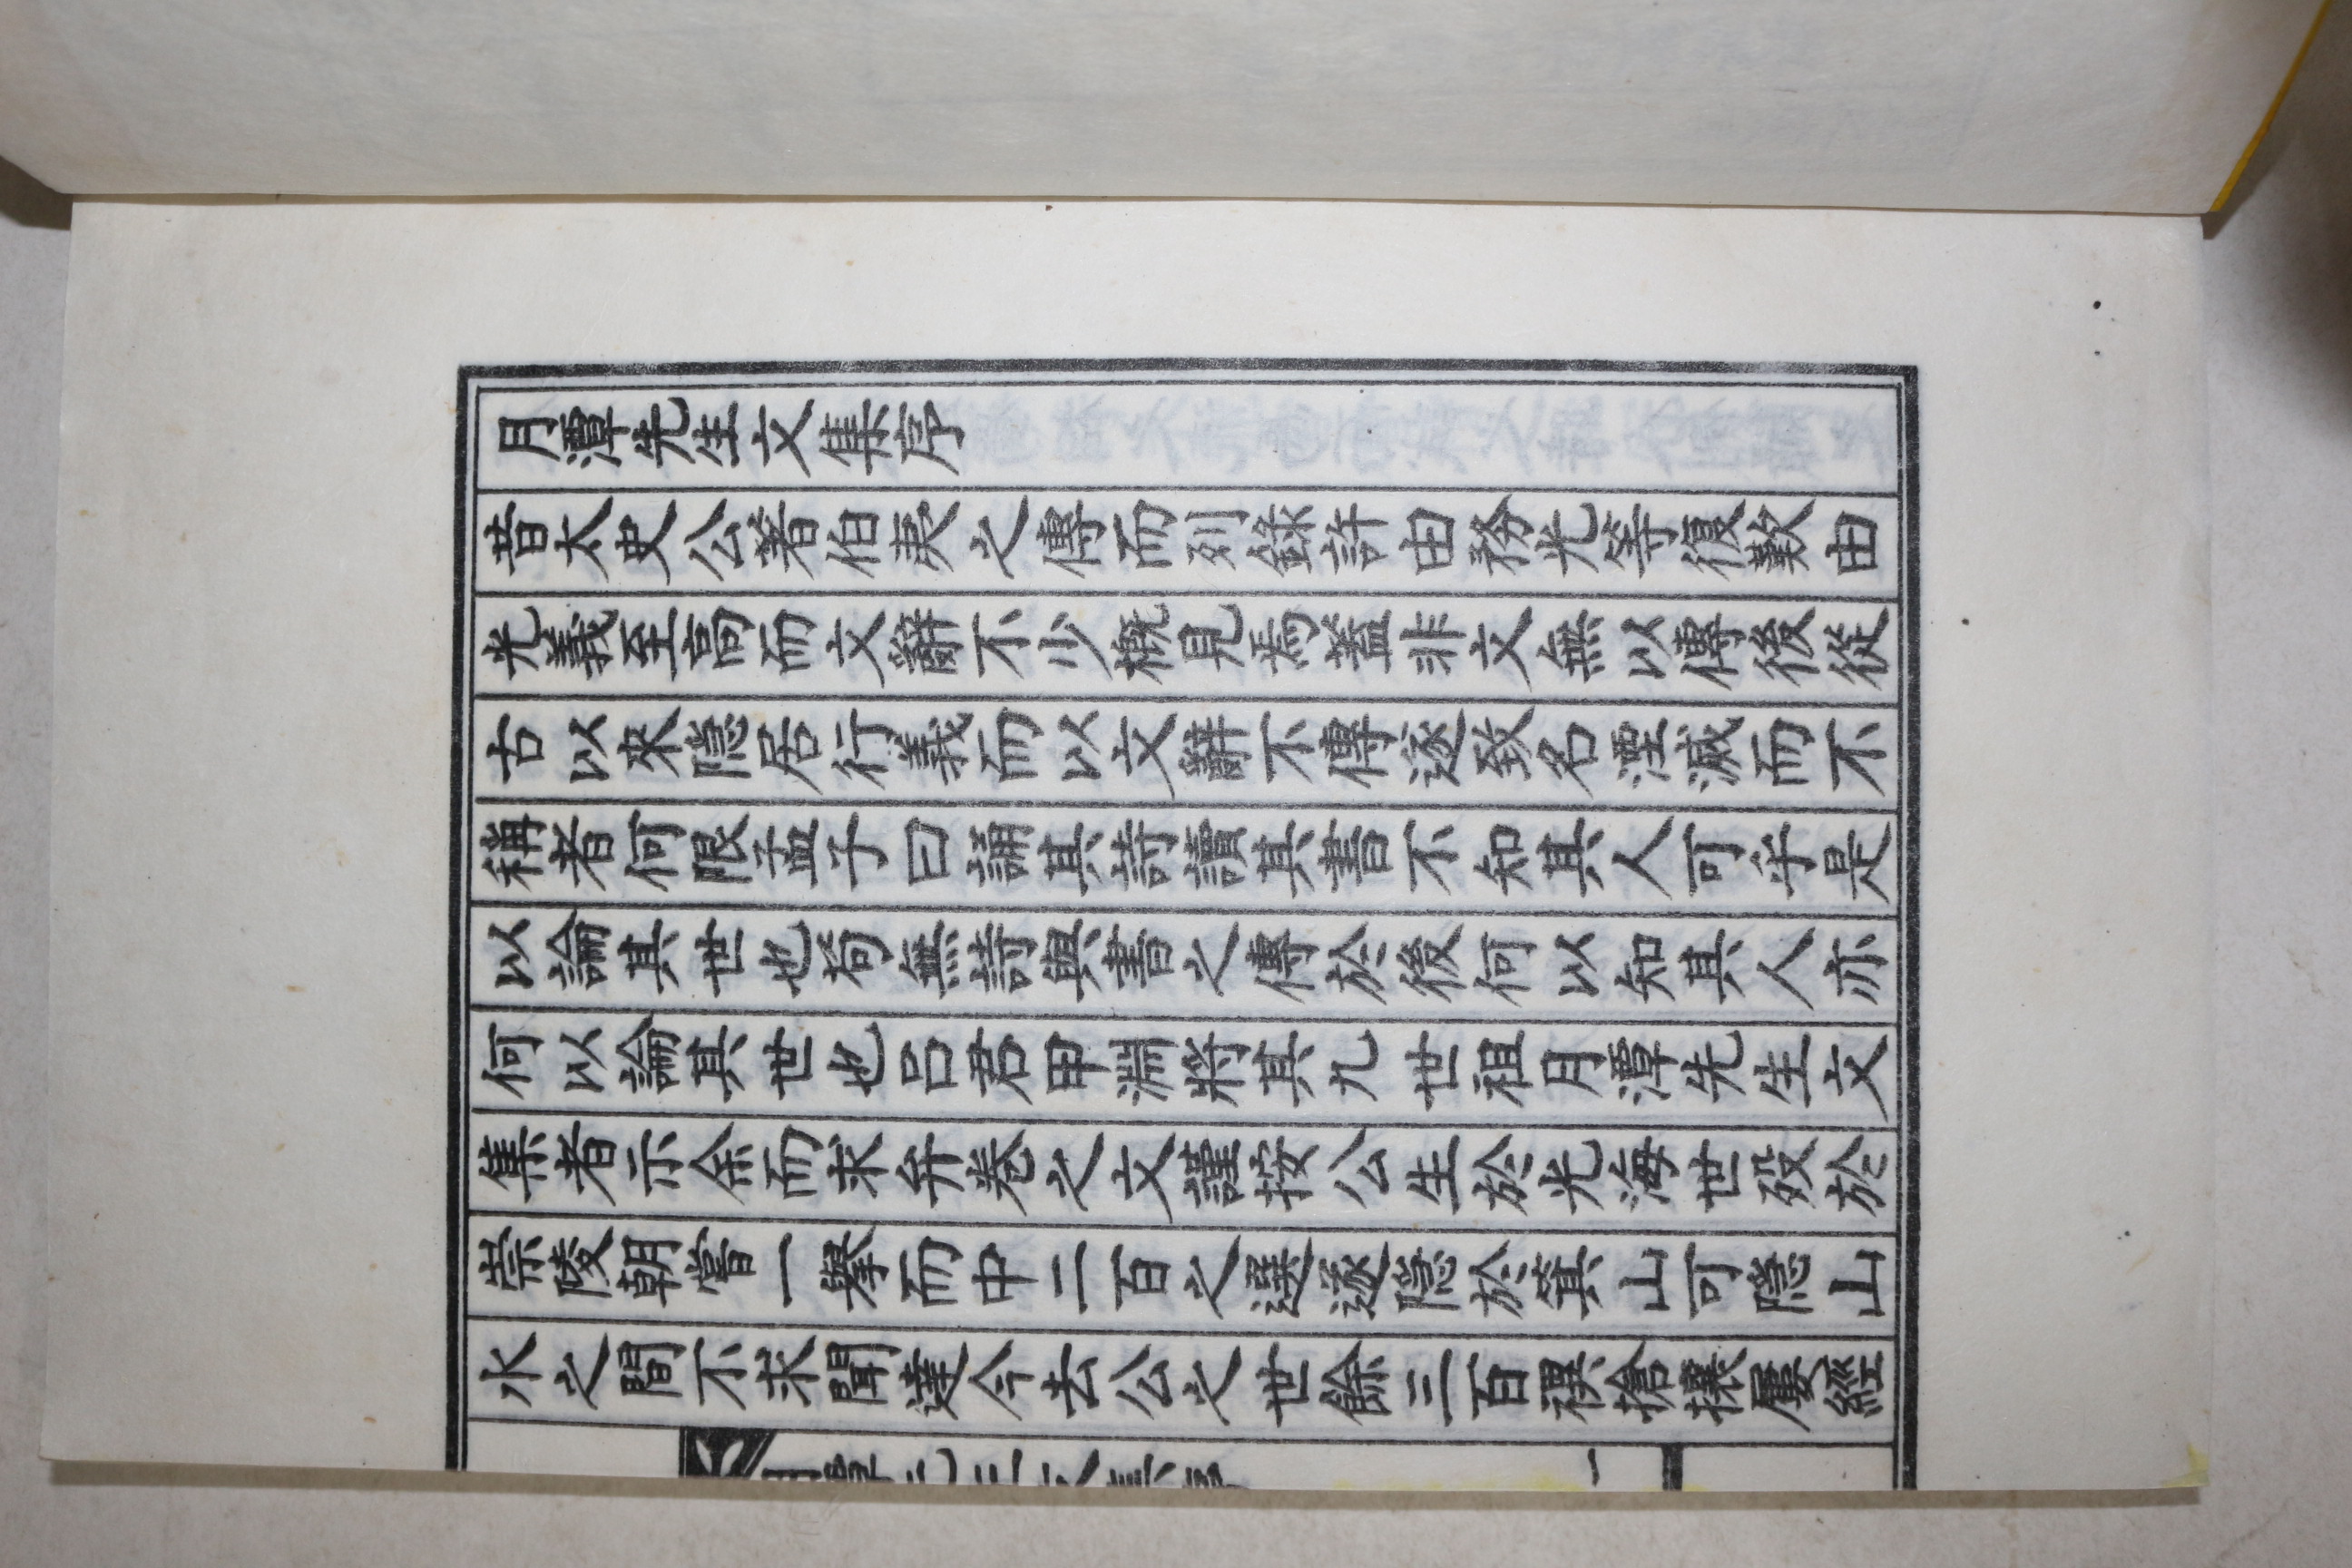 月潭先生文集序
昔太史公著伯夷之傳而列錄許由務光等復歎由
光義至高而文辭不少槪見焉蓋非文無以傳後從
古以來隱居行義而以文辭不傳遂致名湮滅而不
稱者何限孟子曰誦其詩讀其書不知其人可乎是
以論其世也苟無詩與書之傳於後何以知其人亦
何以論其世也呂君甲淵將其九世祖月潭先生文
集者示余而求弁卷之文謹按公生於光海世歿於
崇陵朝嘗一擧而中二百之選遂隱於箕山可隱山
水之間不求聞達今去公之世餘三百禩搶攘屢經
月潭先生文集序
一